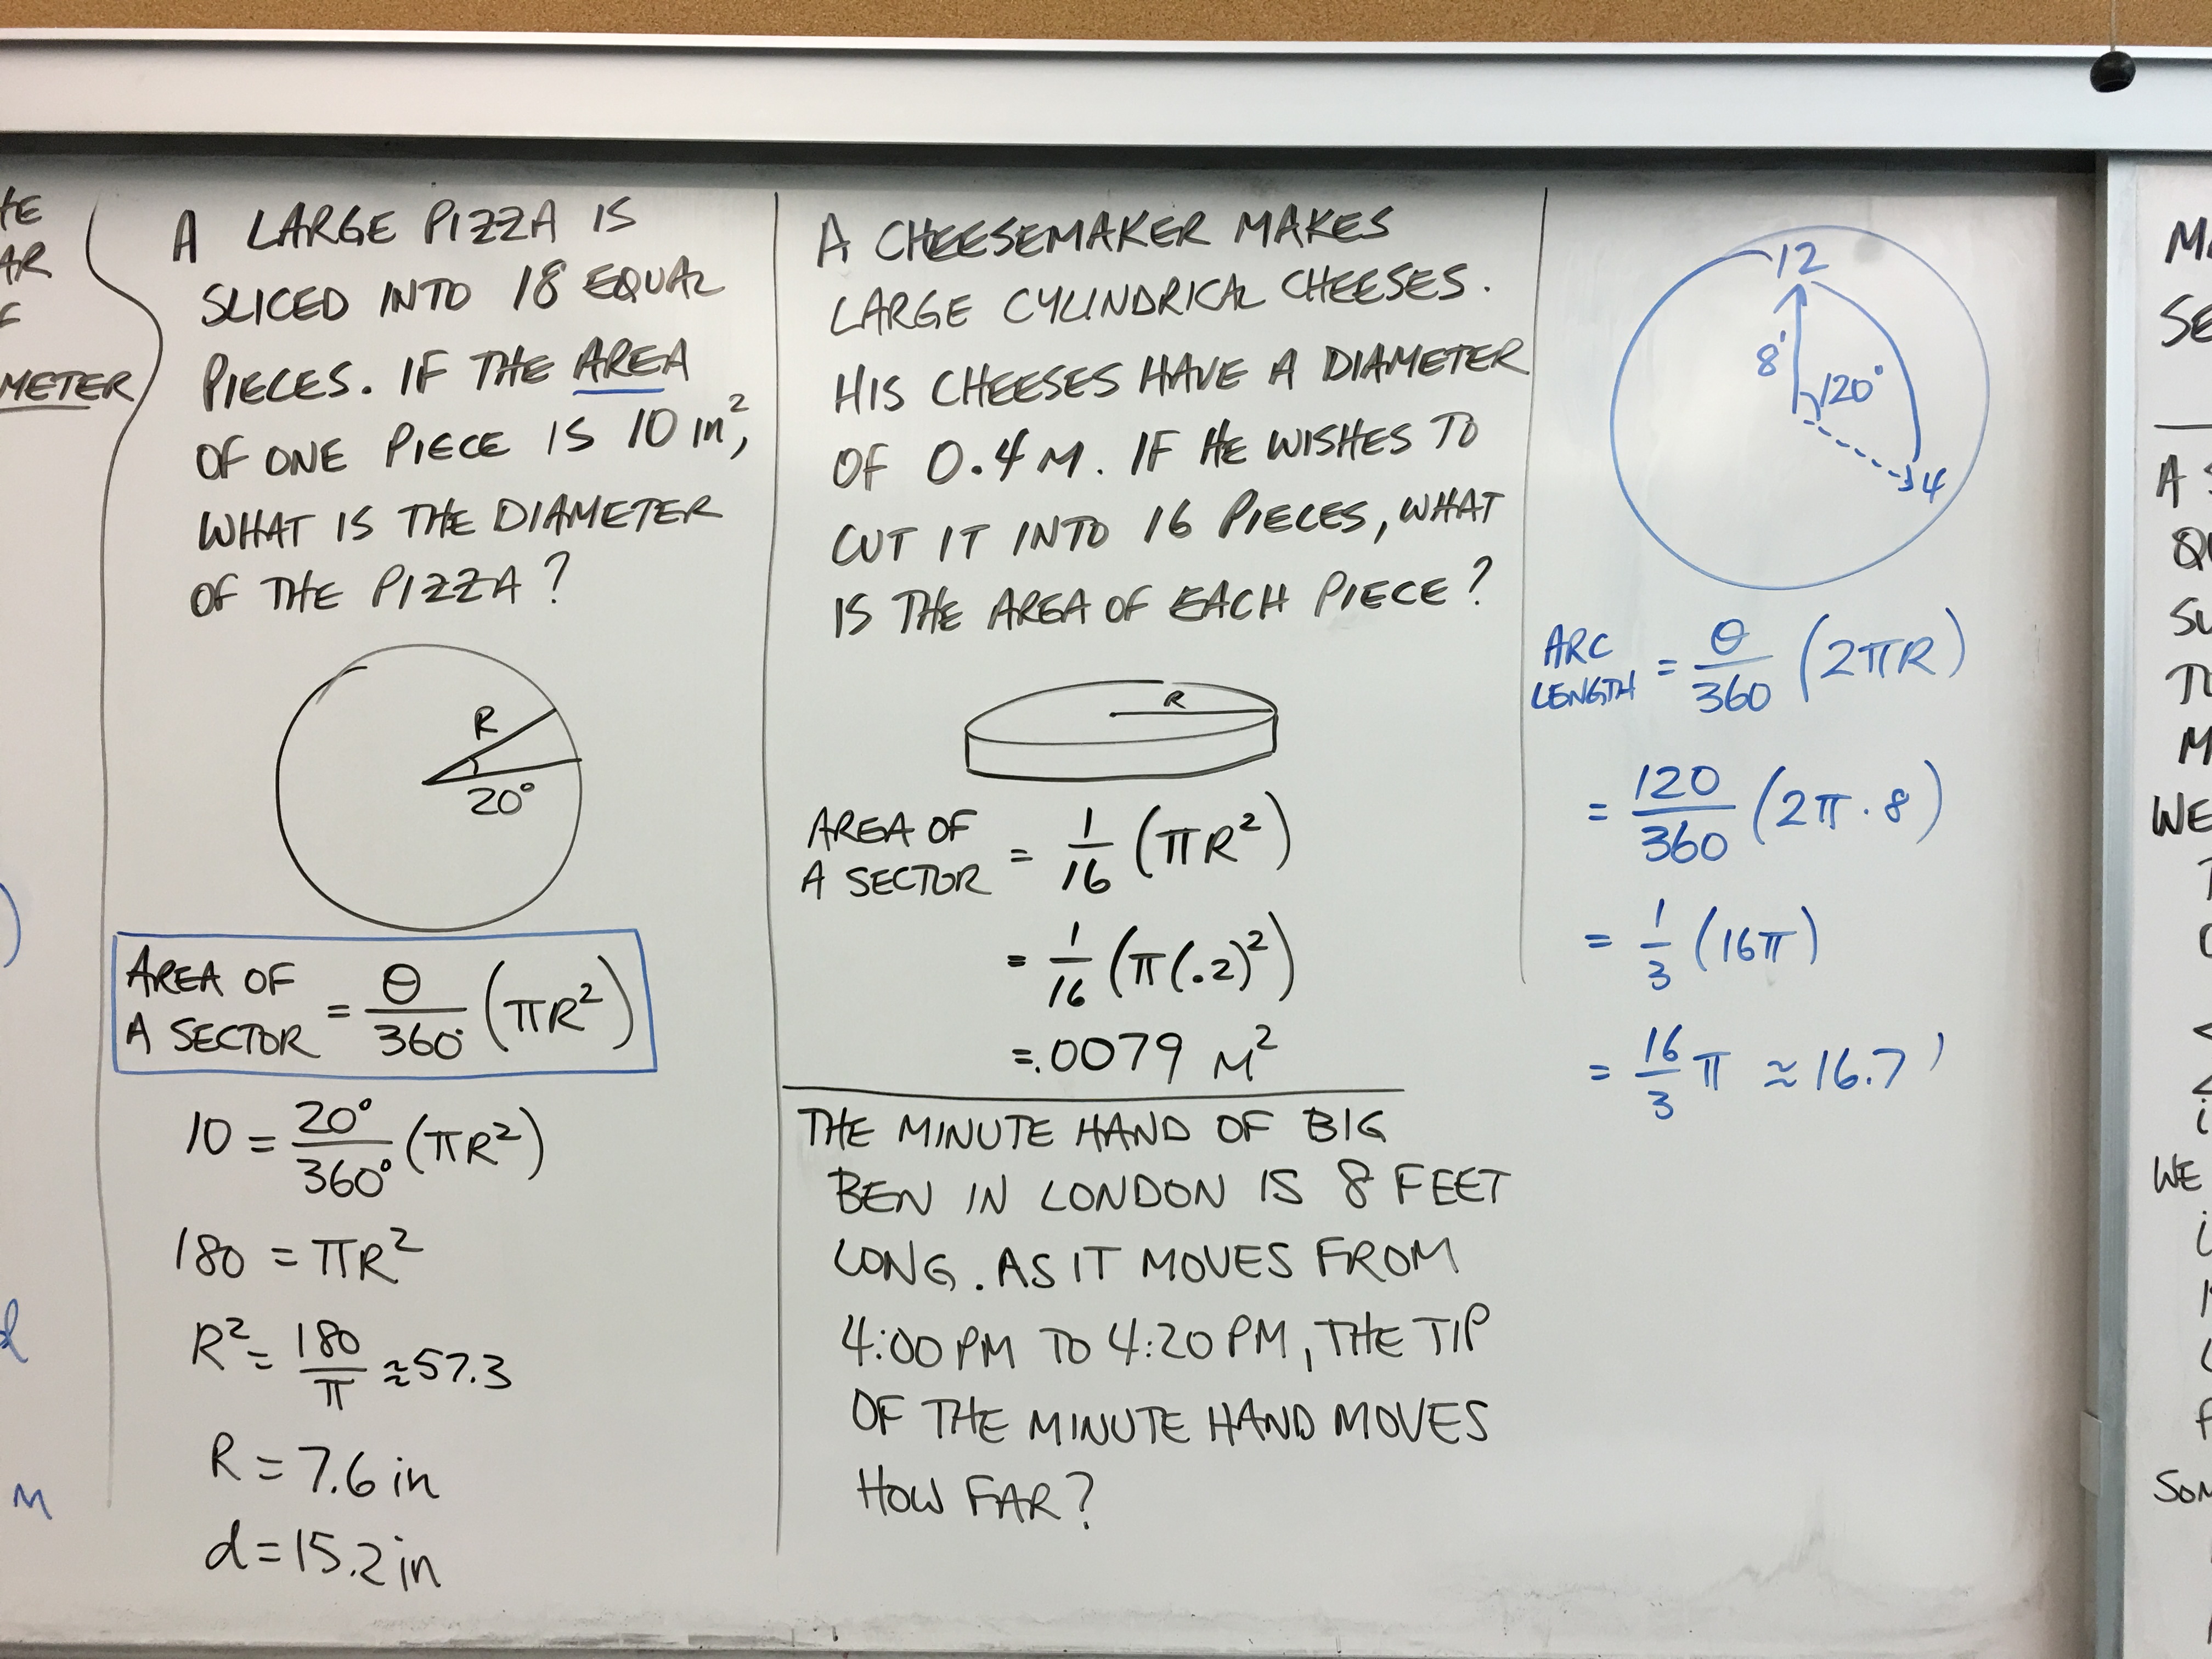 HE
AR
F
METER
M
A LARGE PIZZA IS
SLICED INTO 18 EQUAL
PIECES. IF THE AREA
OF ONE PIECE IS 10 in²,
WHAT IS THE DIAMETER
OF THE PIZZA?
R
20°
AREA OF
A SECTOR = θ/360° (πR²)
10 = 20°/360° (πR²)
180 = πR²
R² = 180/π ≈ 57.3
R = 7.6 in
d = 15.2 in
A CHEESEMAKER MAKES
LARGE CYLINDRICAL CHEESES.
HIS CHEESES HAVE A DIAMETER
OF 0.4 M. IF HE WISHES TO
CUT IT INTO 16 PIECES, WHAT
IS THE AREA OF EACH PIECE?
R
AREA OF
A SECTOR = 1/16 (πR²)
= 1/16 (π(.2)²)
= .0079 M²
THE MINUTE HAND OF BIG
BEN IN LONDON IS 8 FEET
LONG. AS IT MOVES FROM
4:00 PM TO 4:20 PM, THE TIP
OF THE MINUTE HAND MOVES
HOW FAR?
12
8'
120°
4
ARC
LENGTH = θ/360 (2πR)
= 120/360 (2π · 8)
= 1/3 (16π)
= 16/3 π ≈ 16.7'
A
WE
WE